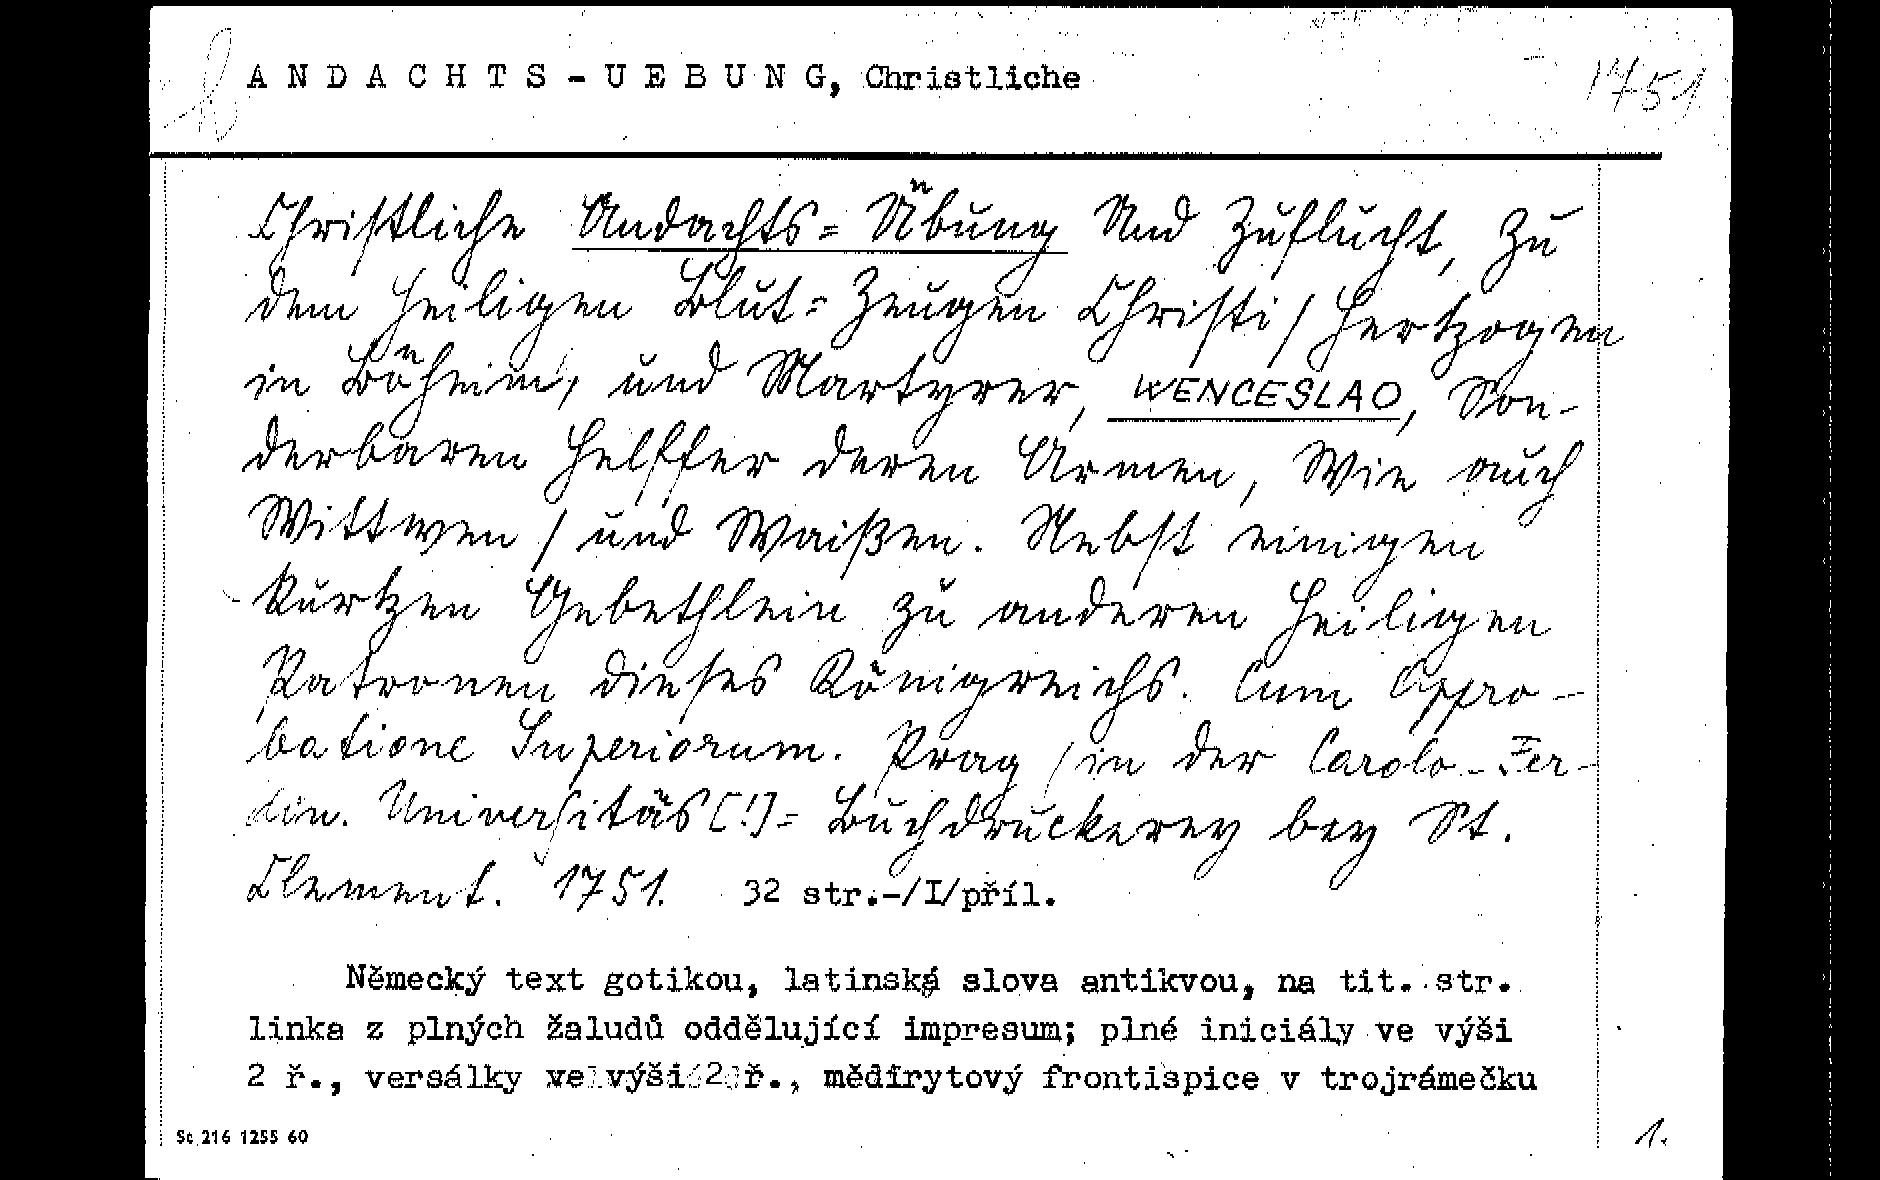 A N D A C H T S - U E B U N G, Christliche
1751
Christliche Andachts= Übung Und Zuflucht, Zu
dem Heiligen Blut= Zeugen Christi / Hertzogen
in Böheim, und Martyrer, WENCESLAO, Son-
derbaren Helffer deren Armen, Wie auch
Wittwen / und Waißen. Nebst einigen
Kurtzen Gebethlein zu anderen Heiligen
Patronen dieses Königreichs. Cum Appro-
batione Superiorum. Prag / in der Carolo-Fer-
din. Universitäs[!]= Buchdruckerey bey St.
Clement. 1751. 32 str.-/I/příl.
Německý text gotikou, latinská slova antikvou, na tit. str.
linka z plných žaludů oddělující impresum; plné iniciály ve výši
2 ř., versálky ve výši 2 ř., mědirytový frontispice v trojrámečku
Sc 216 1255 60
1.